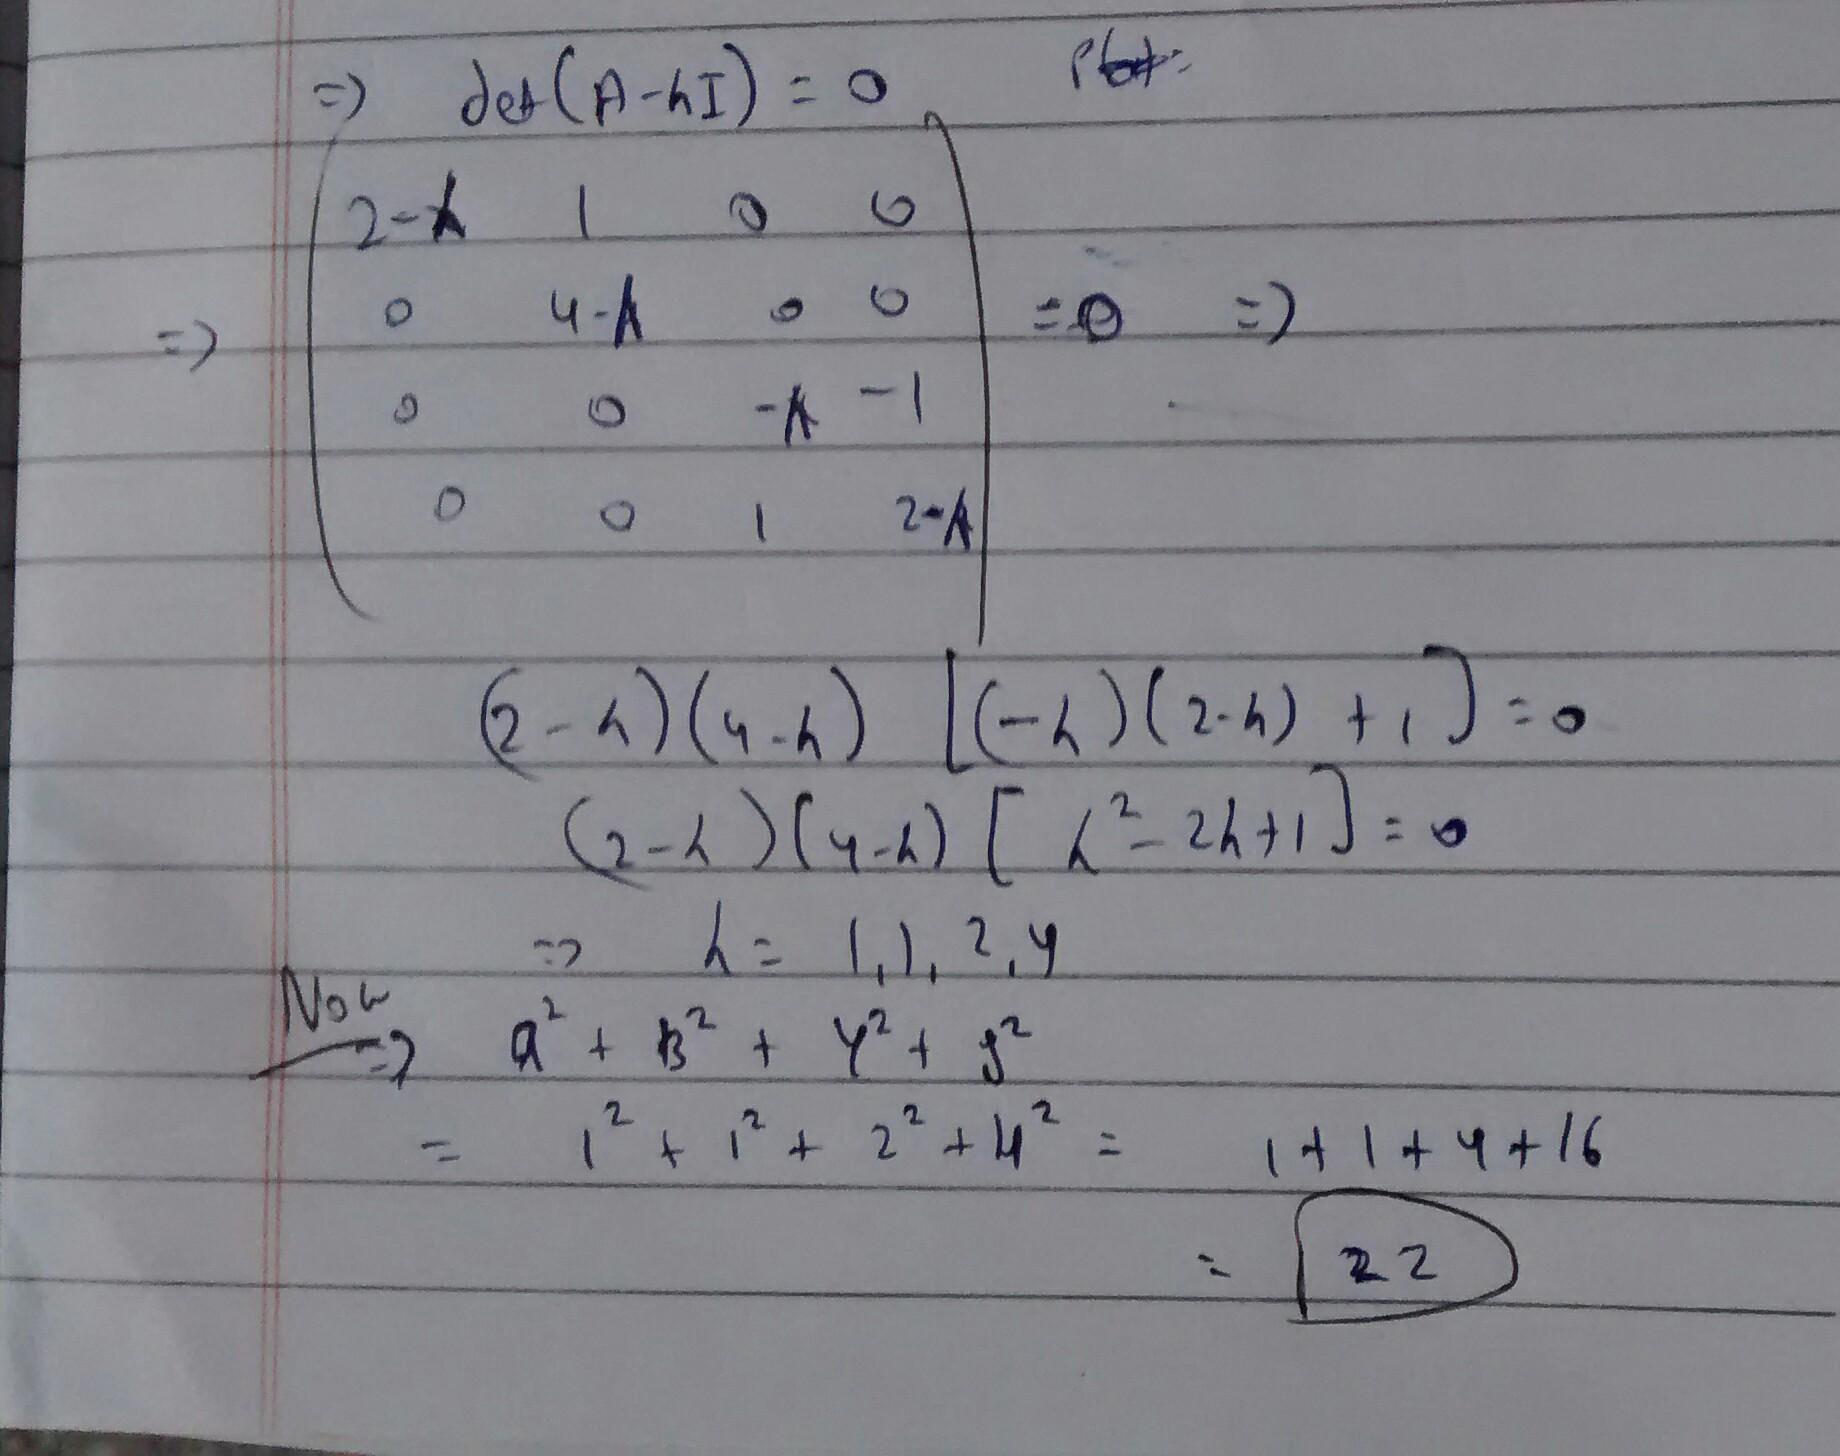 => det(A-λI) = 0
2-λ 1 0 0
0 4-λ 0 0
=> =0 =>
0 0 -λ -1
0 0 1 2-λ
(2-λ)(4-λ) [(-λ)(2-λ) +1] = 0
(2-λ)(4-λ) [λ² - 2λ+1] = 0
=> λ = 1,1,2,4
Now => α² + β² + γ² + δ²
= 1² + 1² + 2² + 4² = 1+1+4+16
= 22